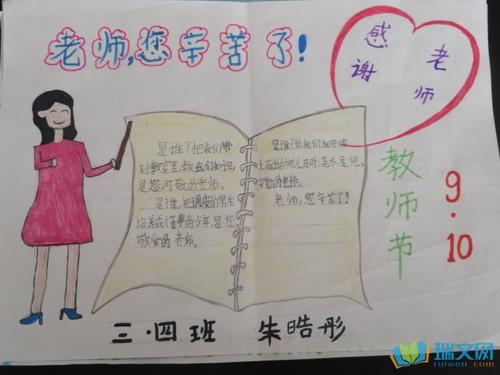 老师,您辛苦了!
感谢
老师
是谁?把我们带
到教室里,教我们知识,
是您,可敬的老师。
是谁,把调皮的男生
培养成懂事的少年,是您,
敬爱的老师。
是谁?把我们
的老师。
老师,您辛苦了!
教师节
9.10
三·四班 朱皓彤
瑞文网
ruiwen.com